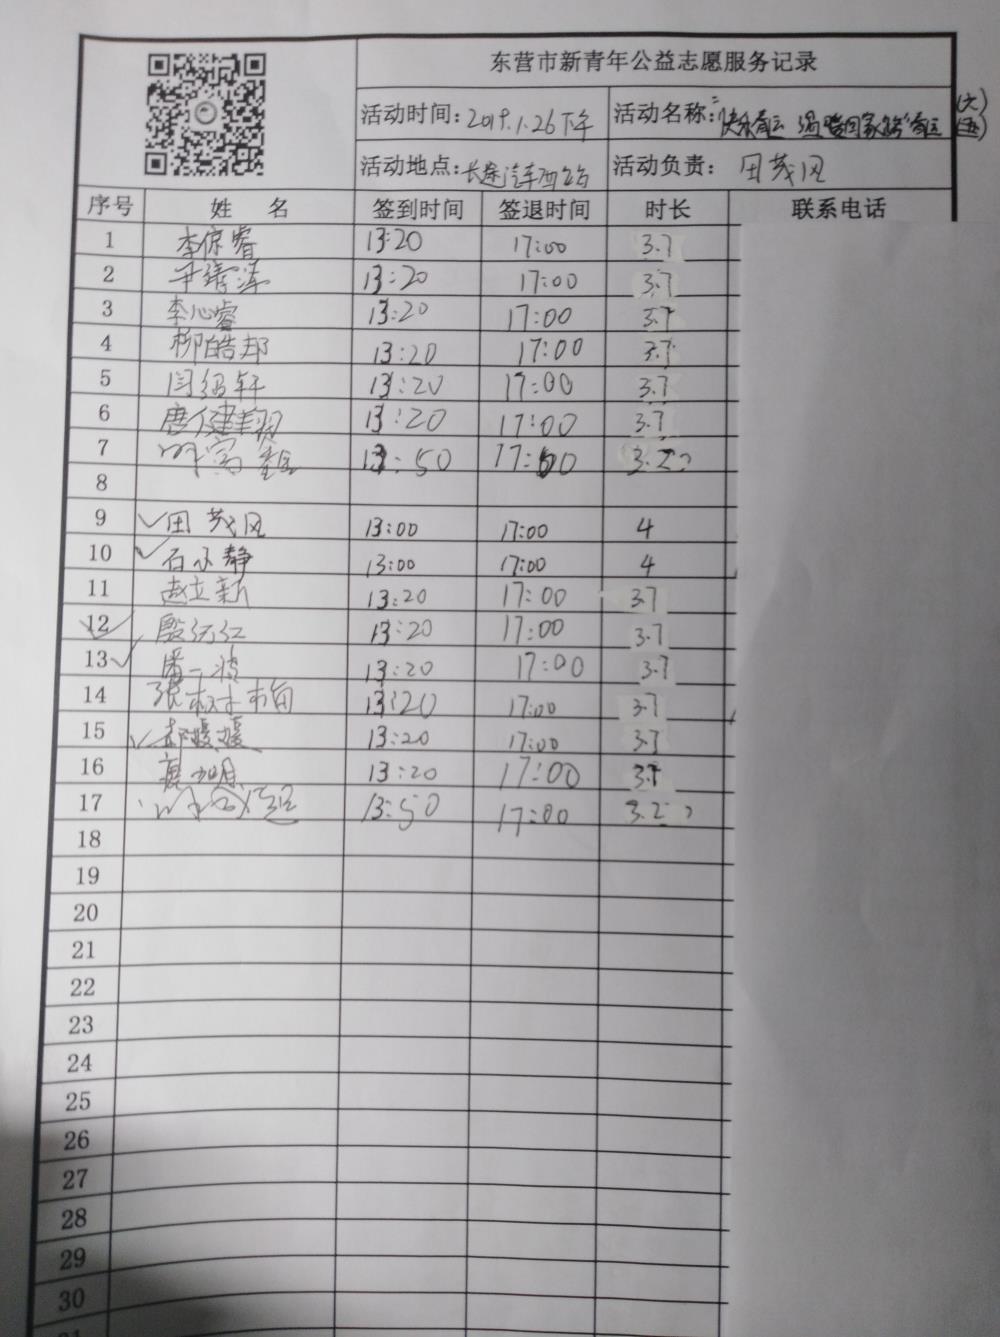 东营市新青年公益志愿服务记录
活动时间：2019.1.26下午 活动名称：
活动地点：长途汽车西站 活动负责：田茂风
序号 姓名 签到时间 签退时间 时长 联系电话
1 李倞睿 13:20 17:00 3.7
2 13:20 17:00 3.7
3 李心睿 13:20 17:00 3.7
4 柳皓邦 13:20 17:00 3.7
5 闫绍轩 13:20 17:00 3.7
6 唐健翔 13:20 17:00 3.7
7 13:50 17:00 3.2
8
9 田茂风 13:00 17:00 4
10 石小静 13:00 17:00 4
11 赵立新 13:20 17:00 3.7
12 13:20 17:00 3.7
13 13:20 17:00 3.7
14 张树梅 13:20 17:00 3.7
15 郝媛媛 13:20 17:00 3.7
16 13:20 17:00 3.7
17 13:50 17:00 3.2
18
19
20
21
22
23
24
25
26
27
28
29
30